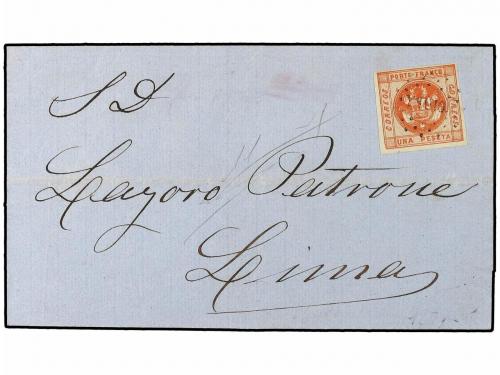 S D
Layoro Patrone
Lima
PORTE FRANCO
CORREOS
UNA PESETA